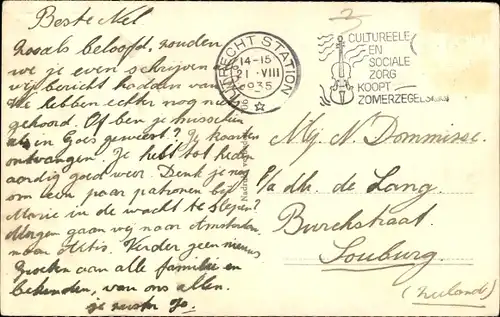 Beste Nel
Zooals beloofd, zouden
we je even schrijven
wij bericht hadden van
We hebben echter nog niets
gehoord. Of ben je misschien
als in Goes geweest? Je kaarten
ontvangen. Je hebt tot heden
aardig goed weer. Denk je nog
om een paar patronen bij
Marie in de wacht te slepen?
Morgen gaan wij naar Amsterdam
naar Artis. Verder geen nieuws
Groeten aan alle familie en
bekenden, van ons allen.
je zuster Jo.
UTRECHT STATION
14-15
21 VIII
1935
CULTUREELE
EN
SOCIALE
ZORG
KOOPT
ZOMERZEGELS
Mej. N. Dommisse.
p/a dh. de Lang
Burchstraat.
Souburg.
(Zeeland)